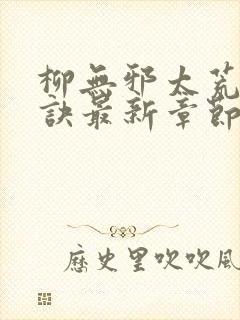 柳無邪太荒
訣最新章節
歷史里吹吹風